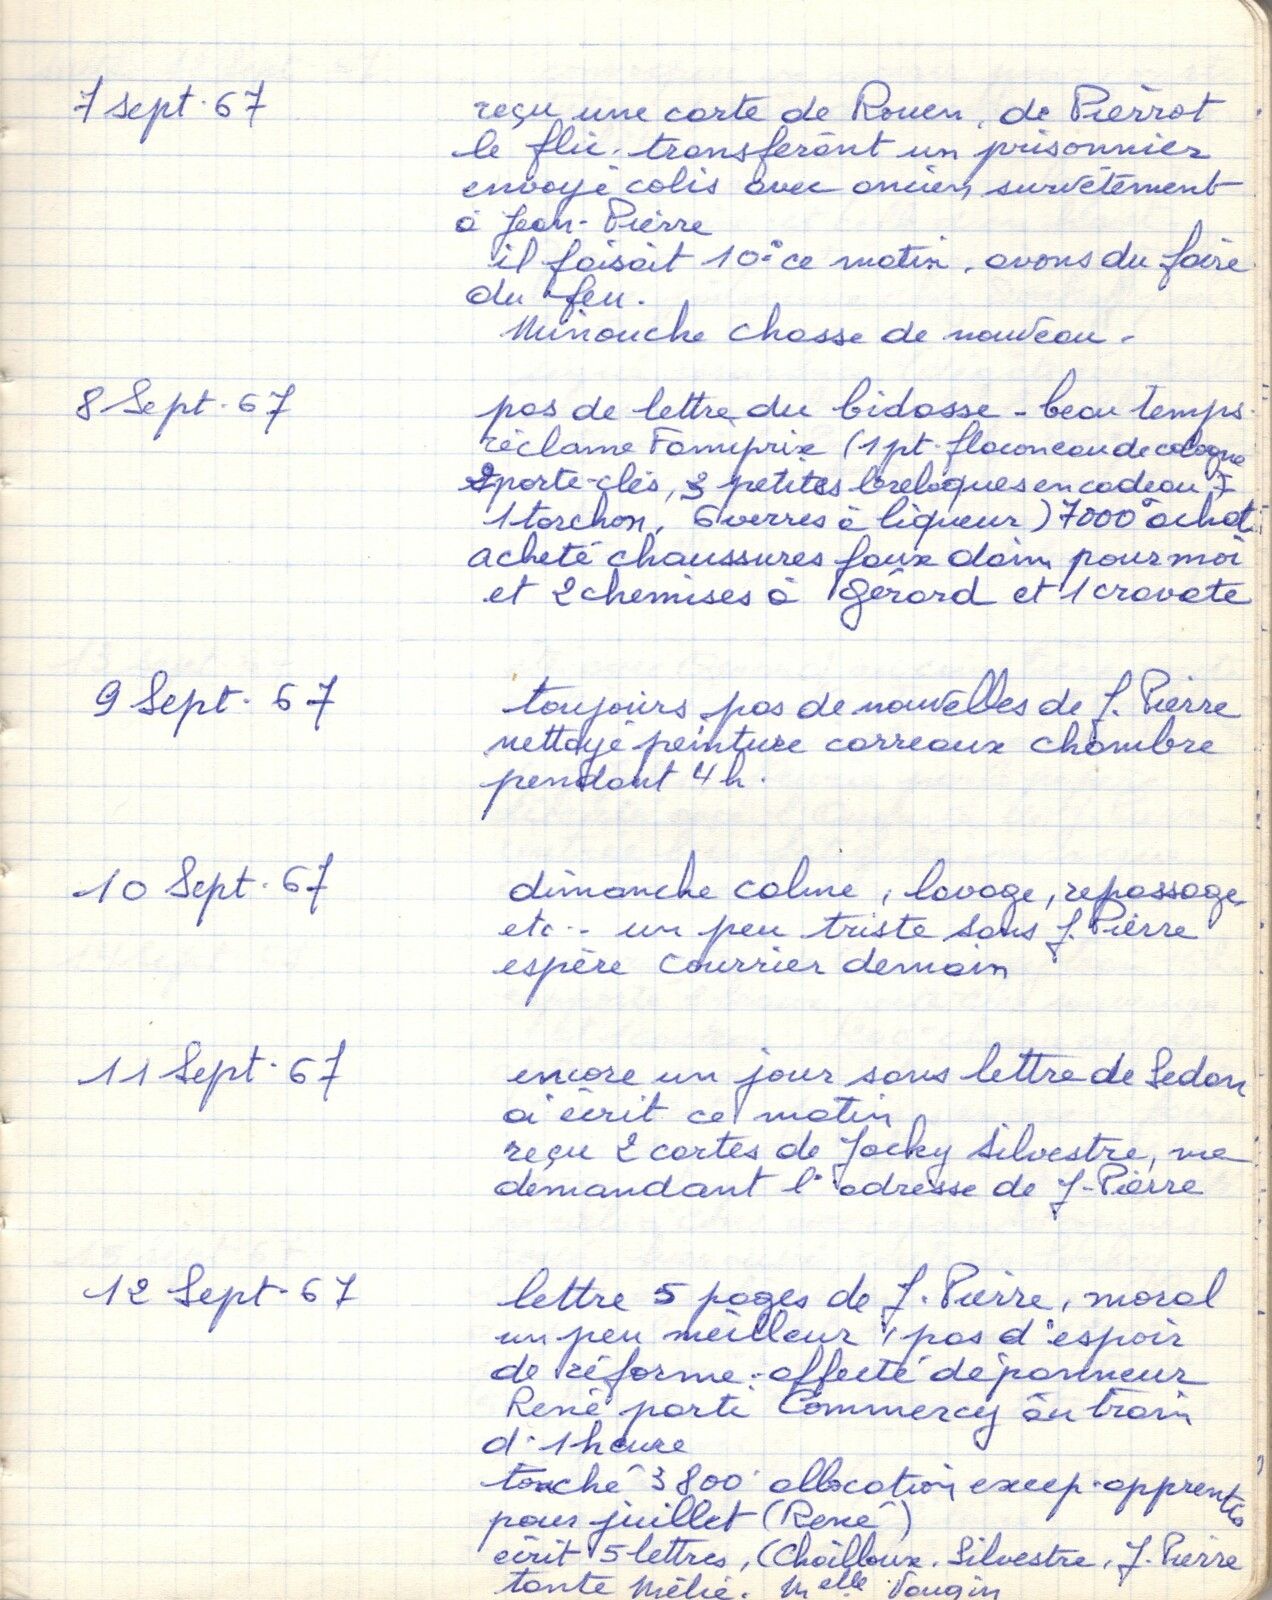 7 sept. 67 reçu une carte de Rouen, de Pierrot
le flic. transférant un prisonnier
envoyé colis avec ancien survêtement
à Jean-Pierre
il faisait 10° ce matin, avons du faire
du feu.
Minouche chasse de nouveau.
8 Sept. 67 pas de lettre du bidasse - beau temps.
réclame Famiprix (1 pt. flacon eau de cologne
2 porte-clés, 3 petites breloques en cadeau +
1 torchon, 6 verres à liqueur) 7000° achat
acheté chaussures faux daim pour moi
et 2 chemises à Gérard et 1 cravate
9 Sept. 67 toujours pas de nouvelles de J. Pierre
nettoyé peinture carreaux chambre
pendant 4 h.
10 Sept. 67 dimanche calme, lavage, repassage
etc.. un peu triste sans J. Pierre
espère courrier demain
11 Sept. 67 encore un jour sans lettre de Sedan
ai écrit ce matin
reçu 2 cartes de Jacky Silvestre, me
demandant l'adresse de J-Pierre
12 Sept. 67 lettre 5 pages de J. Pierre, moral
un peu meilleur, pas d'espoir
de réforme. affecté dépanneur
René parti Commercy au train
d'1 heure
touché 3800 allocation excep. apprentis
pour juillet (René)
écrit 5 lettres, (Chailloux, Silvestre, J. Pierre
tante Mélie. Melle Vaugin